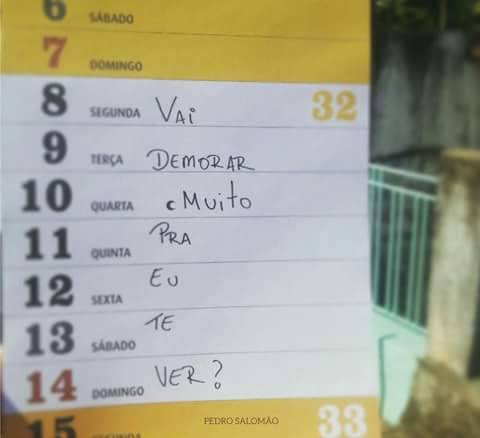 6 SÁBADO
7 DOMINGO
8 SEGUNDA Vai 32
9 TERÇA DEMORAR
10 QUARTA Muito
11 QUINTA PRA
12 SEXTA EU
13 SÁBADO TE
14 DOMINGO VER?
15 SEGUNDA 33
PEDRO SALOMÃO